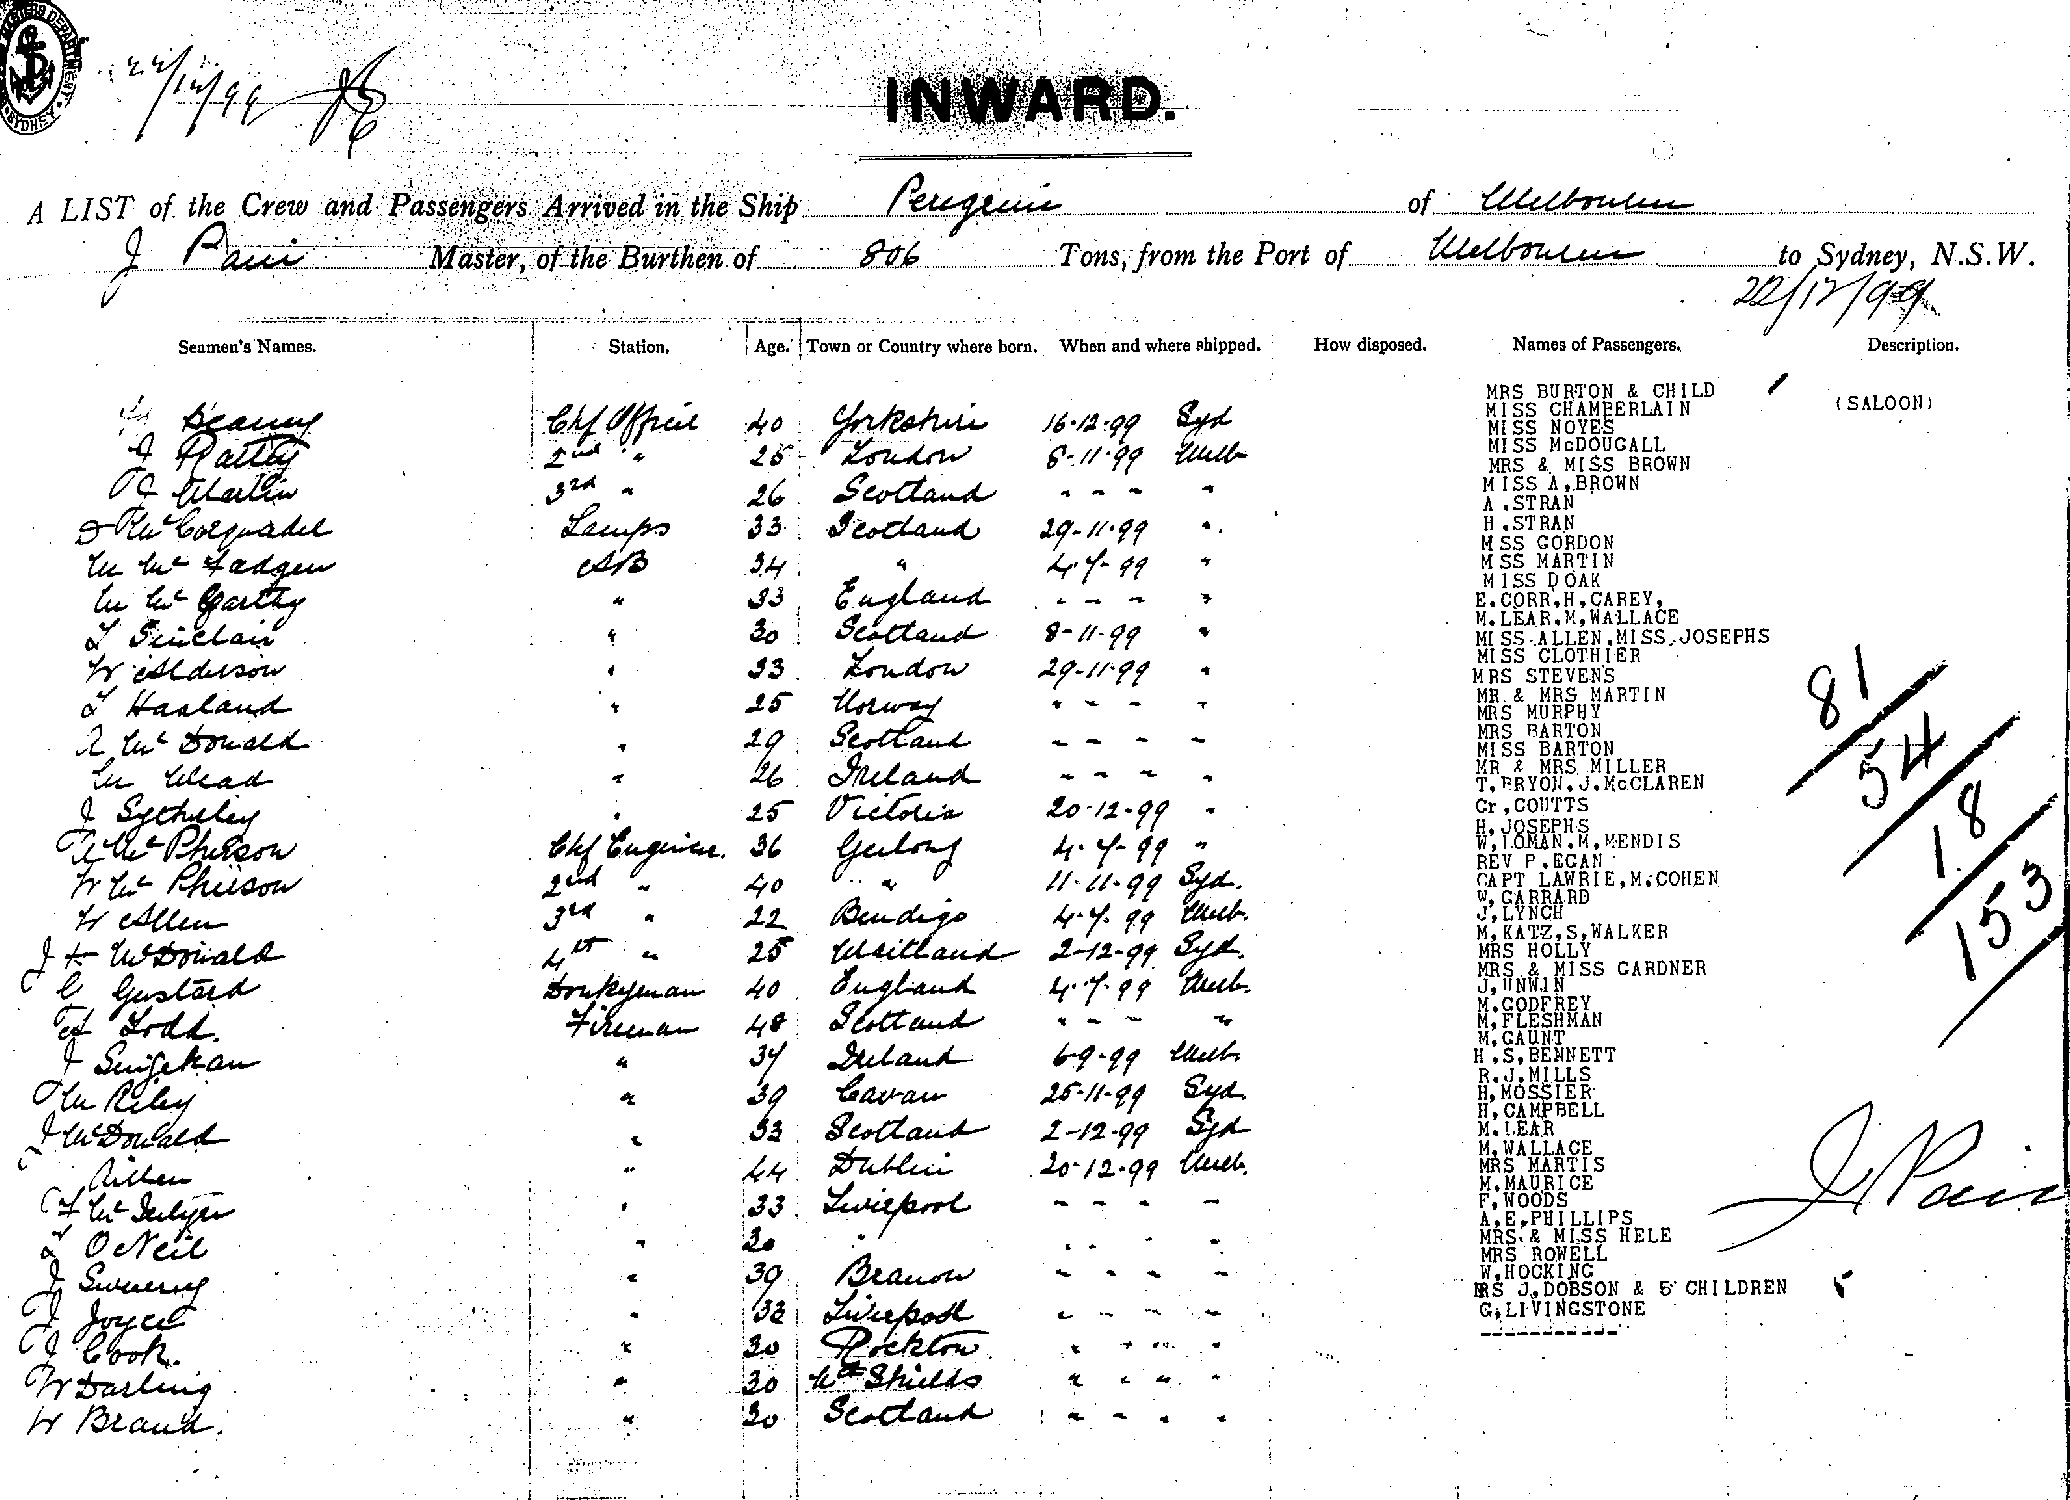 MARINE DEPARTMENT. SYDNEY
22/12/99
INWARD.
A LIST of the Crew and Passengers Arrived in the Ship Peregrine of Melbourne
J Pain Master, of the Burthen of 806 Tons, from the Port of Melbourne to Sydney, N.S.W.
22/12/99
Seamen's Names. Station. Age. Town or Country where born. When and where shipped. How disposed. Names of Passengers. Description.
Deanny Chf Officer 40 Yorkshire 16-12-99 Syd
J Rattey 2nd " 25 London 8-11-99 Melb
Martin 3rd " 26 Scotland - - - "
D McCorquadel Lamps 33 Scotland 29-11-99 "
M Mc Fadgen AB 34 " 4-7-99 "
M Mc Garthy " 33 England - - - "
L Sinclair " 30 Scotland 8-11-99 "
W Alderson " 33 London 29-11-99 "
L Haaland " 25 Norway " - - -
R Mc Donald " 29 Scotland - - - -
M Mead " 26 Ireland - - - "
J Sytherley " 25 Victoria 20-12-99 "
Mc Pherson Chf Engineer. 36 Geelong 4-7-99 "
W Mc Pherson 2nd " 40 " 11-11-99 Syd.
W Allen 3rd " 22 Bendigo 4-7-99 Melb.
J H McDonald 4th " 25 Maitland 2-12-99 Syd.
G Gustard Donkeyman 40 England 4-7-99 Melb.
Todd. Fireman 48 Scotland " - - "
J " 37 Ireland 6-9-99 Melb.
M Riley " 39 Cavan 25-11-99 Syd.
J McDonald " 33 Scotland 2-12-99 Syd
Aitken " 44 Dublin 20-12-99 Melb.
F Mc " 33 Liverpool - - - -
L O'Neil " 30 " " - -
J Sweeny " 39 - - - -
J Joyce " 33 Liverpool - - - -
J Cook. " 30 Rockton " " " "
W Darling " 30 Nth Shields " " " "
W Brand. " 30 Scotland " - - "
MRS BURTON & CHILD
(SALOON)
MISS CHAMBERLAIN
MISS NOYES
MISS McDOUGALL
MRS & MISS BROWN
MISS A.BROWN
A.STRAN
H.STRAN
MSS GORDON
MSS MARTIN
MISS DOAK
E.CORR,H,CAREY,
M.LEAR.M,WALLACE
MISS ALLEN,MISS JOSEPHS
MISS CLOTHIER
MRS STEVENS
MR & MRS MARTIN
MRS MURPHY
MRS BARTON
MISS BARTON
MR & MRS MILLER
T.BRYON.J.McCLAREN
Cr,COUTTS
H.JOSEPHS
W,LOMAN.M.MENDIS
REV P.EGAN
CAPT LAWRIE,M.COHEN
W,GARRARD
J,LYNCH
M,KATZ,S,WALKER
MRS HOLLY
MRS & MISS GARDNER
J,UNWIN
M.GODFREY
M,FLESHMAN
M,GAUNT
H.S,BENNETT
R.J.MILLS
H,MOSSIER
H,CAMPBELL
M.LEAR
M,WALLACE
MRS MARTIS
M,MAURICE
F,WOODS
A.E.PHILLIPS
MRS & MISS HELE
MRS ROWELL
W,HOCKING
MRS J.DOBSON & 5 CHILDREN 5
G,LIVINGSTONE
81
54
18
153
J Pain